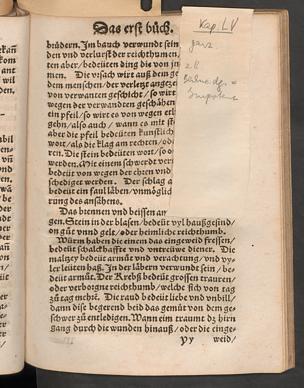 Das erst büch.
brüdern. Im bauch verwundt sein
den vnd verlurst der reichthumen,
ten aber/bedeüten ding die von jm
men. Die vrsach wirt auß dem ge
dem menschen/der verletzt angezey
von verwanten geschihe/so wirt
wegen der verwandten geschähen
ein pfeil/so wirt es von wegen erb
gehn/also auch/wann es mit st
aber die pfeil bedeüten künstlich
wort/als die klag am rechten/od
ren. Die stein bedeüten wort/so o
werden. Mit einem schwerdt ver
bedeüt von wegen der ehren vnd
schediger werden. Der schlag a
bedeüt ein faul läben/vnmöglig
rung des ansähens.
Das brennen vnd beissen an
gen. Stein in der blasen/bedeüt vyl haußgesind/
on gůt vnnd gelt/oder heimliche reichthumb.
Würm haben die einen das eingeweid fressen/
bedeüt schalckhaffte vnd vntrüwe diener. Die
maltzey bedeüt armůt vnd verachtung/vnd vy-
ler leüten haß. In der läbern verwundt sein/be-
deüt armůt. Der Krebß bedeüt grossen trauren/
oder verborgne reichthumb/welche sich von tag
zů tag mehrt. Die raud bedeüt liebe vnd vnbill/
dann dise begerend beid das gemüt von dem ge-
schwer zů entledigen. Wann ein traumt dz hirn
gang durch die wunden hinauß/oder die einge-
Yy weid/
Kap. LV